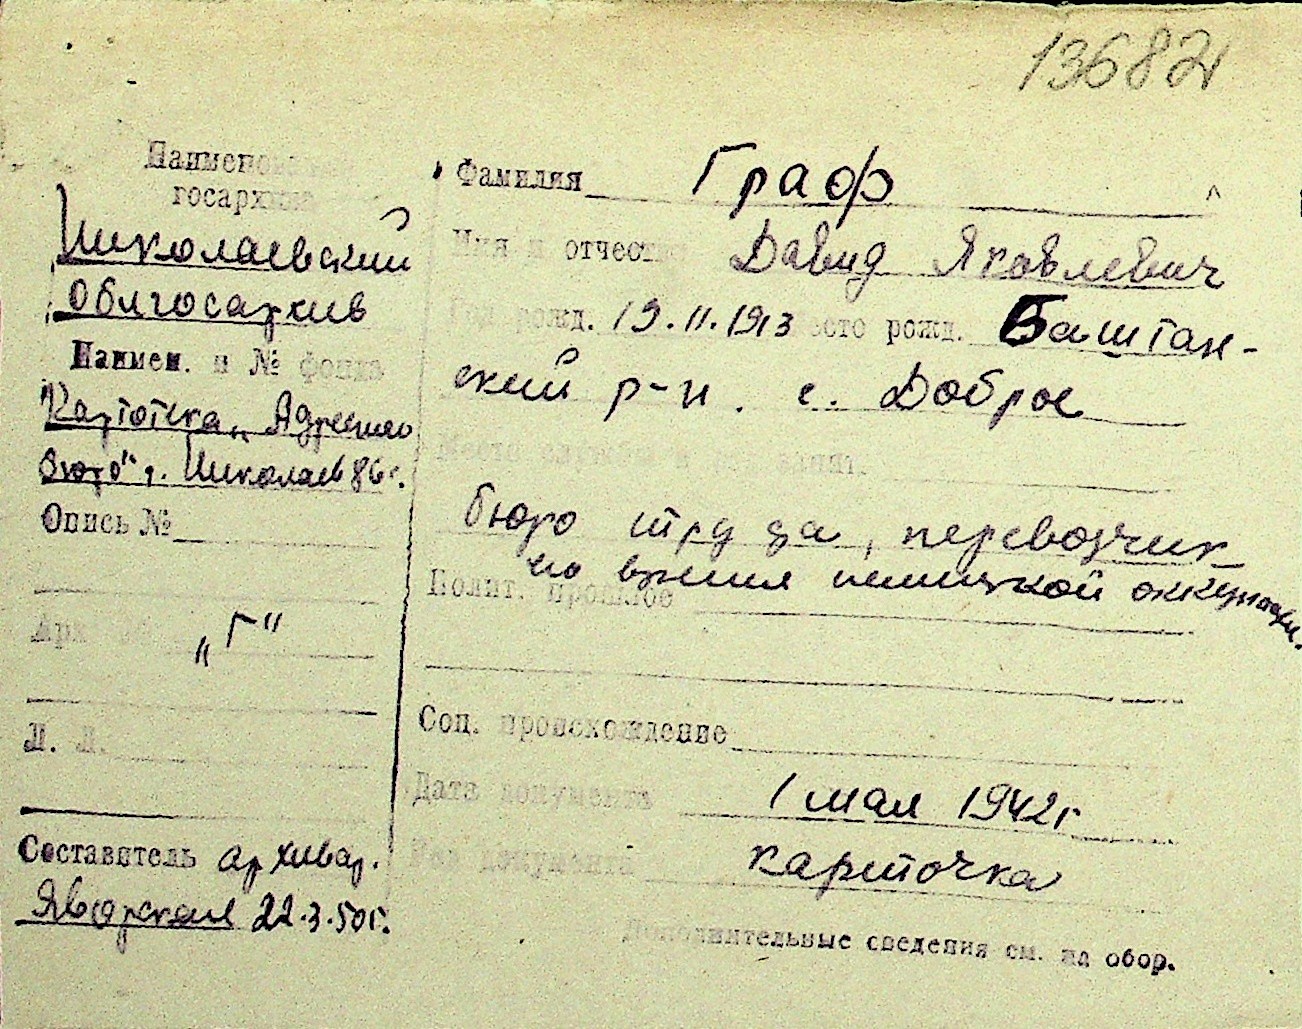 13682
Наименование
госархива
Николаевский
Облгосархив
Наимен. и № фонда
Картотека „Адресное
бюро" г. Николаев
Опись №
Арх
„Г"
Л. Л.
Составитель архивар.
Яворская 22.3.50г.
Фамилия Граф
Имя и отчество Давид Яковлевич
Год рожд. 19.II.1913 Место рожд. Баштан-
ский р-н. с. Доброе
Место службы и
бюро труда, перевозчик
во время немецкой оккупации.
Полит. прошлое
Соц. происхождение
Дата документа 1 мая 1942г
Вид документа карточка
Дополнительные сведения см. на обор.